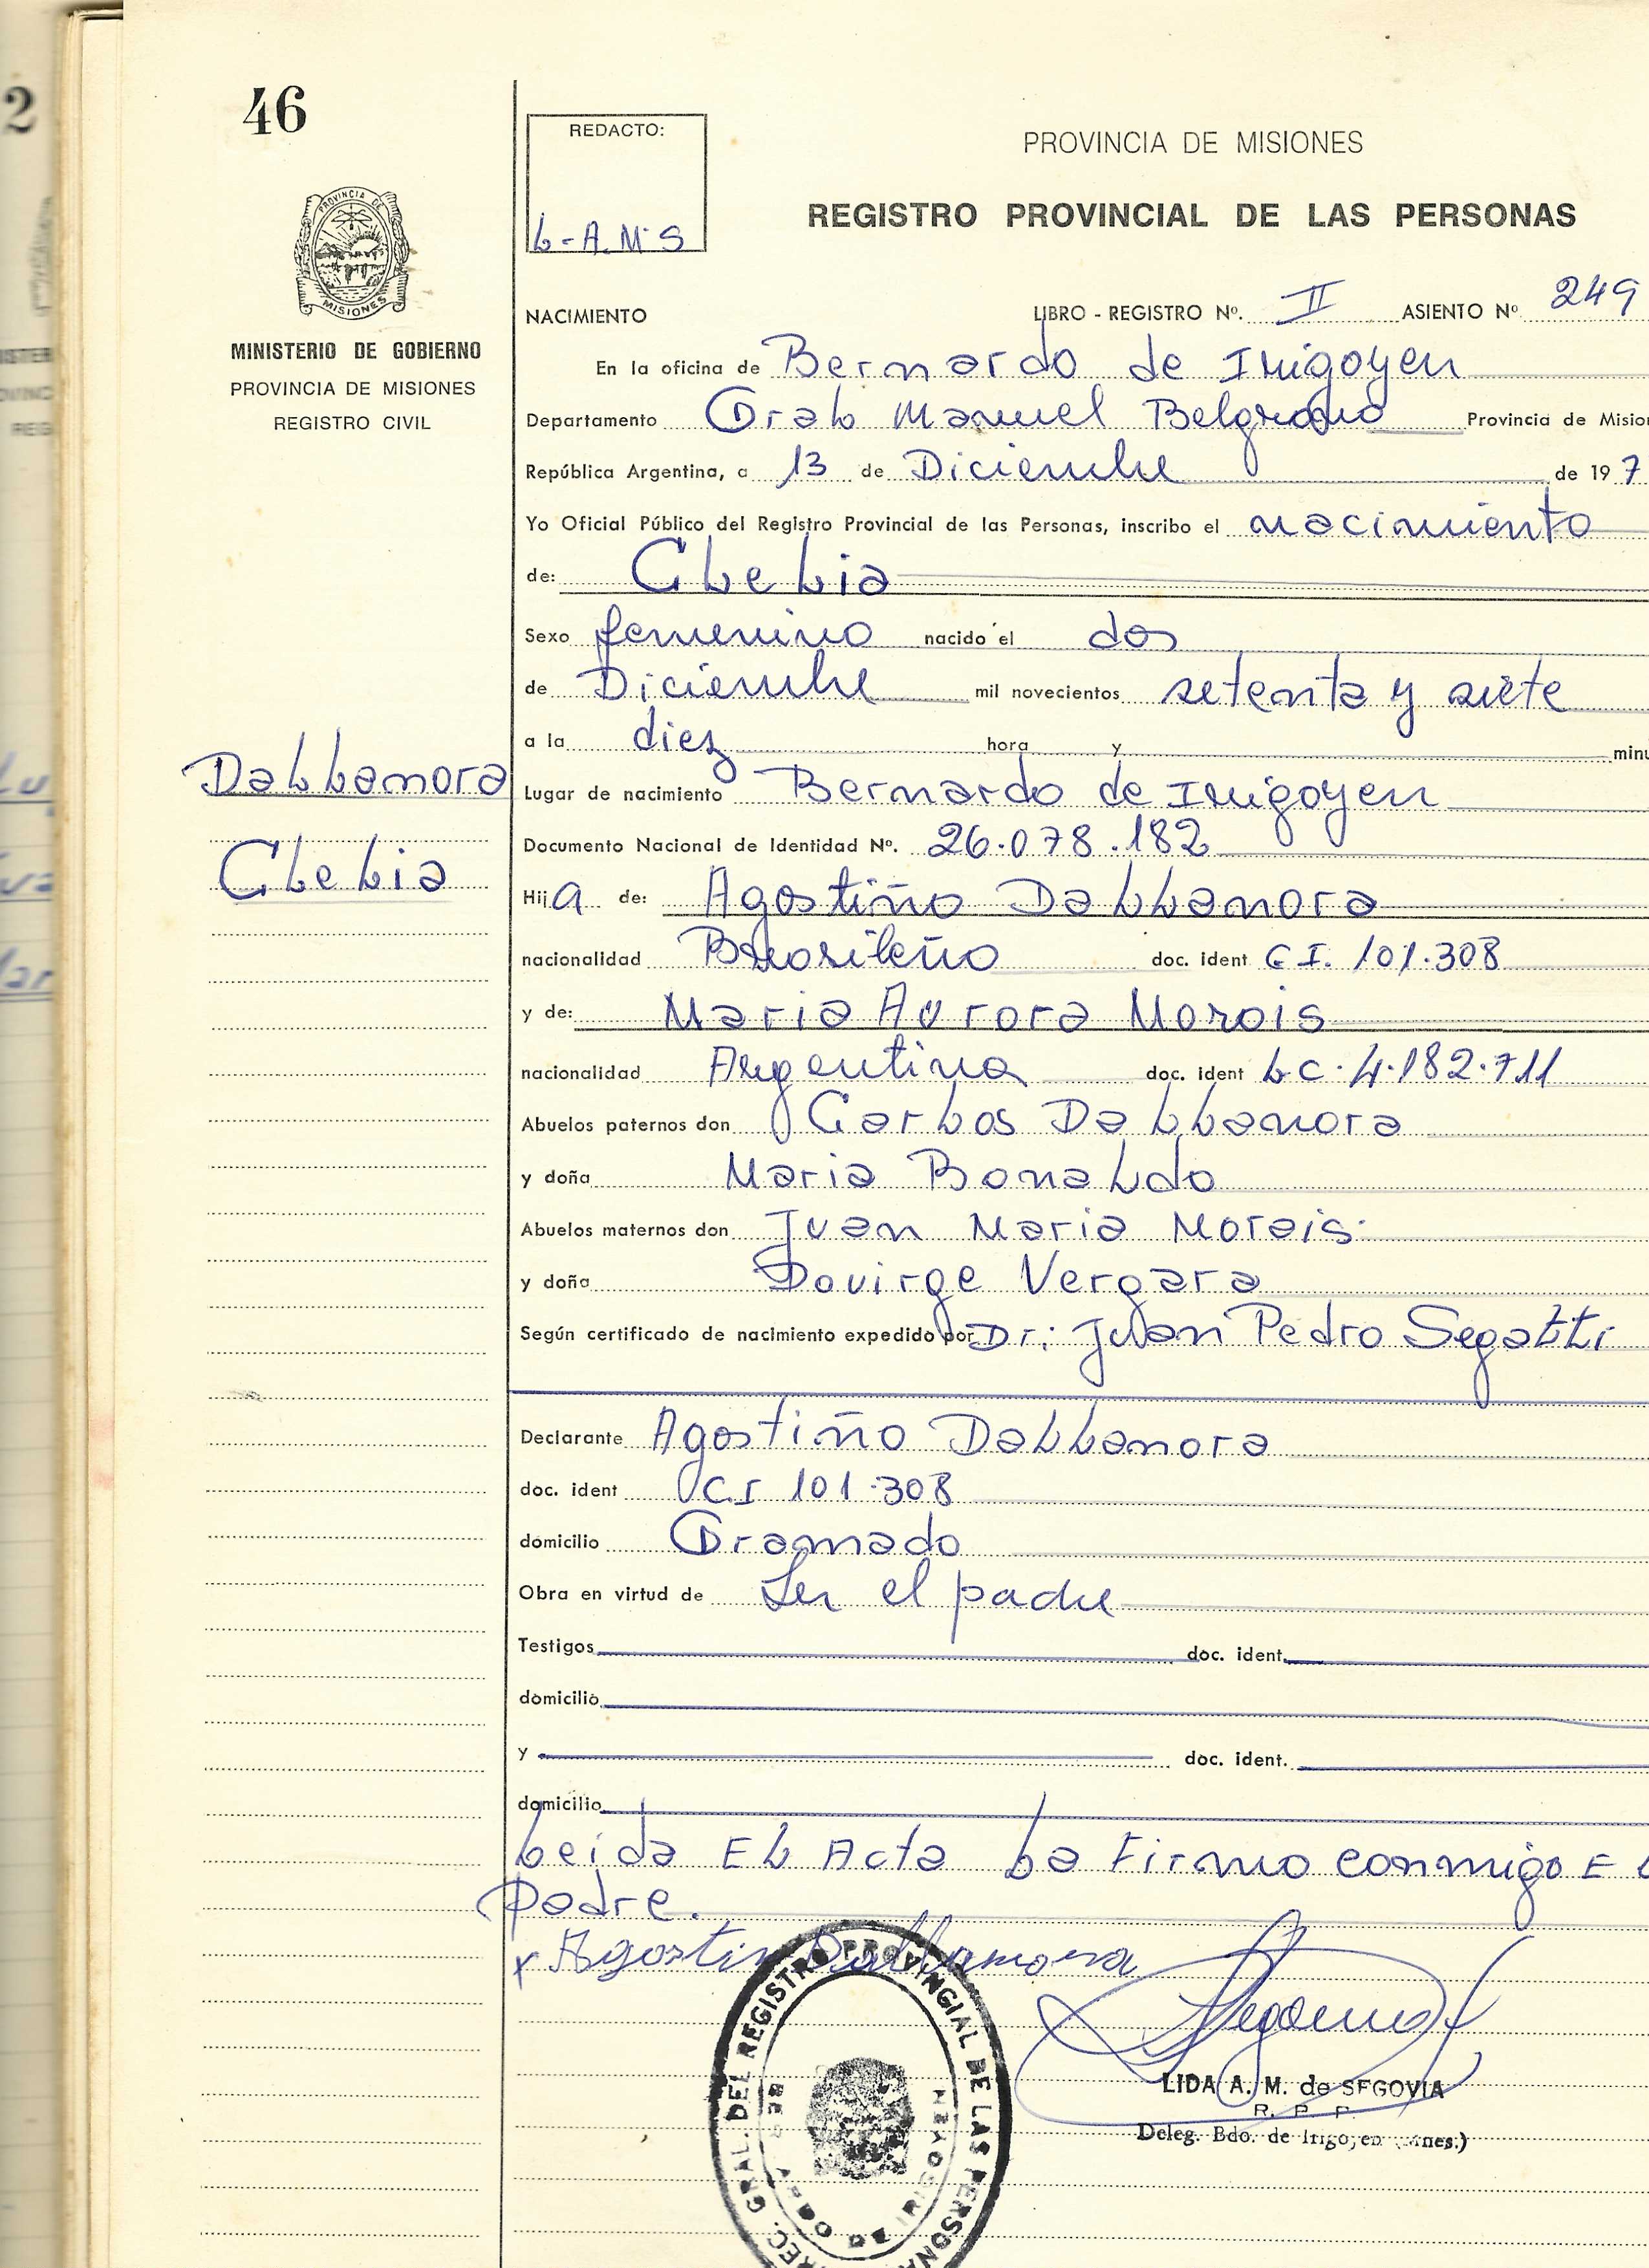 2
46
REDACTO:
L-A.M.S
PROVINCIA DE MISIONES
REGISTRO PROVINCIAL DE LAS PERSONAS
PROVINCIA DE
MISIONES
MINISTERIO DE GOBIERNO
PROVINCIA DE MISIONES
REGISTRO CIVIL
NACIMIENTO LIBRO - REGISTRO Nº. II ASIENTO Nº 249
En la oficina de Bernardo de Irigoyen
Departamento Gral Manuel Belgrano Provincia de Misio
República Argentina, a 13 de Diciembre de 197
Yo Oficial Público del Registro Provincial de las Personas, inscribo el nacimiento
de: Clelia
Sexo femenino nacido el dos
de Diciembre mil novecientos setenta y siete
a la diez hora y minu
Dallanora
Clelia
Lugar de nacimiento Bernardo de Irigoyen
Documento Nacional de Identidad Nº. 26.078.182
Hija de: Agostiño Dallanora
nacionalidad Brasileño doc. ident C.I. 101.308
y de: Maria Aurora Morais
nacionalidad Argentina doc. ident L.C. 4.182.711
Abuelos paternos don Carlos Dallanora
y doña Maria Bonaldo
Abuelos maternos don Juan Maria Morais
y doña Dovirge Vergara
Según certificado de nacimiento expedido por Dr: Juan Pedro Segatti
Declarante Agostiño Dallanora
doc. ident C.I 101.308
domicilio Gramado
Obra en virtud de Ser el padre
Testigos doc. ident.
domicilio
y doc. ident.
domicilio
Leida El Acta La Firmo conmigo E
Padre.
x Agostin Dallamora
DIREC. GRAL. DEL REGISTRO PROVINCIAL DE LAS PERSONA
LIDA A. M. de SEGOVIA
R. P. P.
Deleg. Bdo. de Irigoyen (Mnes.)